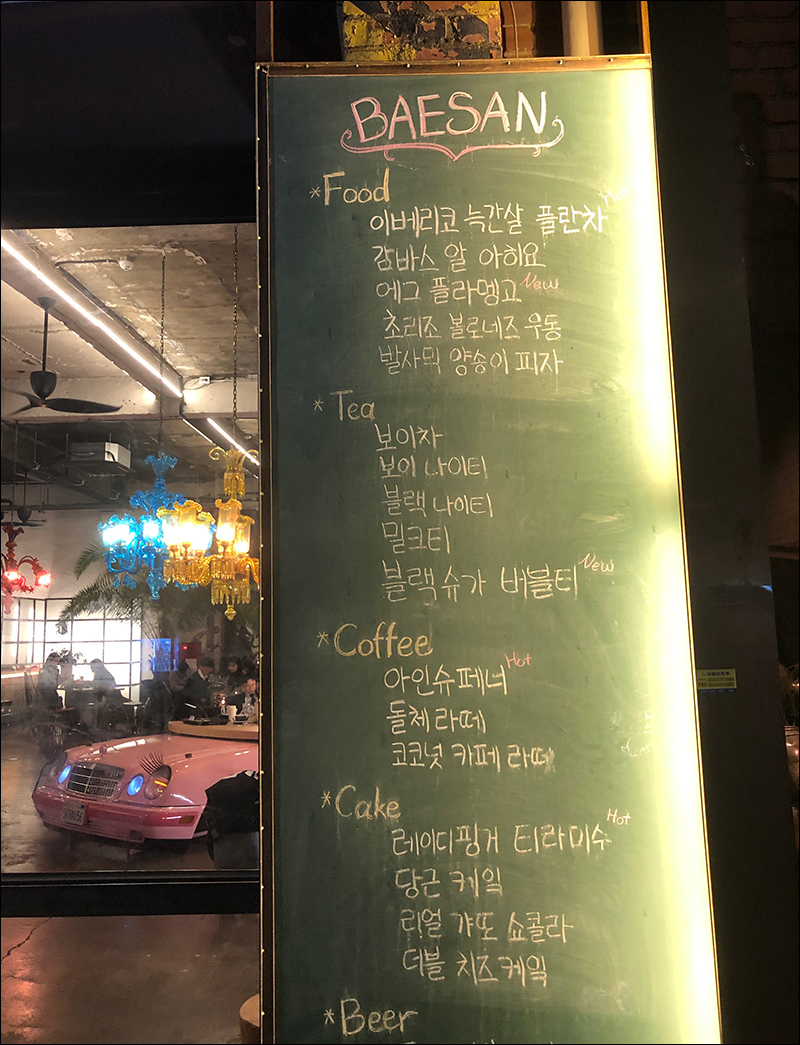 BAESAN
*Food
이베리코 늑간살 플란차 Hot
감바스 알 아히요
에그 플라멩고 New
초리조 볼로네즈 우동
발사믹 양송이 피자
*Tea
보이차
보이 나이티
블랙 나이티
밀크티
블랙슈가 버블티 New
*Coffee
아인슈페너 Hot
돌체 라떼
코코넛 카페 라떼
*Cake
레이디핑거 티라미수 Hot
당근 케잌
리얼 갸또 쇼콜라
더블 치즈케잌
*Beer